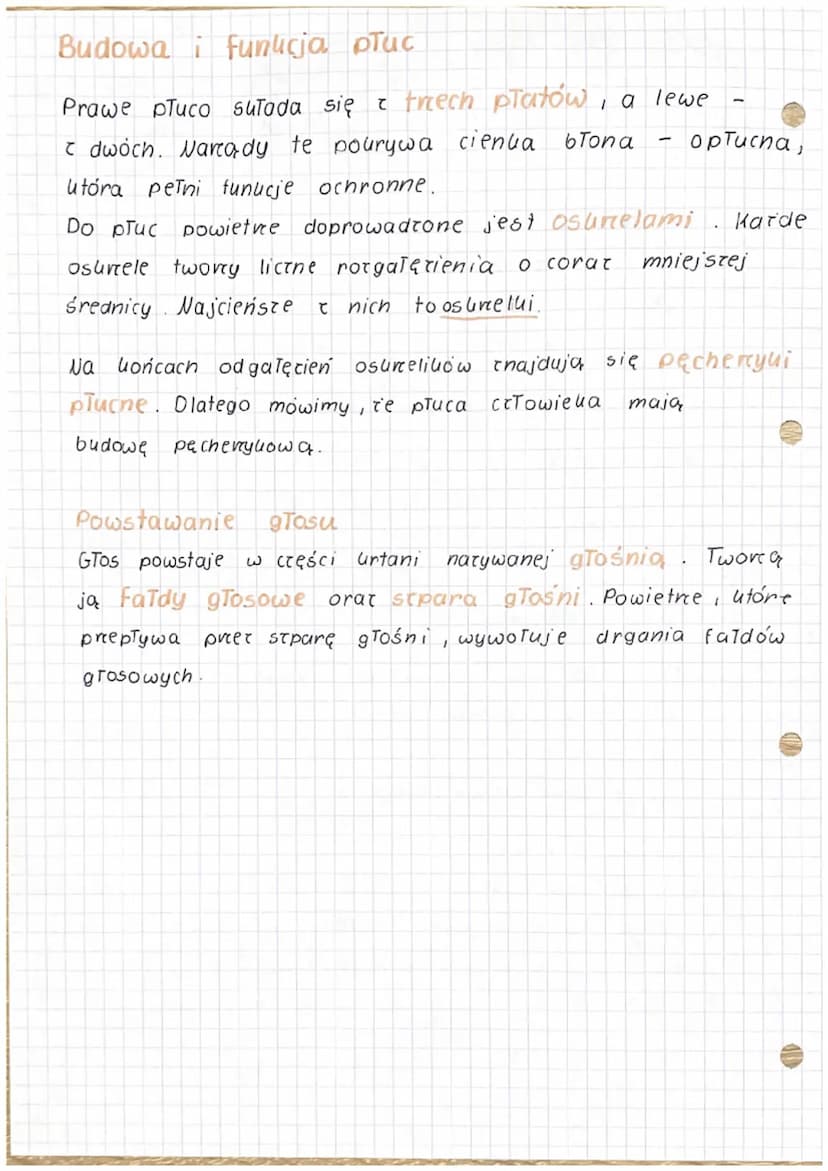 Budowa i funkcja płuc
Prawe płuco składa się z trzech płatów, a lewe -
z dwóch. Narządy te pokrywa cienka błona - opłucna,
która pełni funkcje ochronne.
Do płuc powietrze doprowadzone jest oskrzelami. Każde
oskrzele tworzy liczne rozgałęzienia o coraz mniejszej
średnicy. Najcieńsze z nich to oskrzelki.
Na końcach odgałęzień oskrzelików znajdują się pęcherzyki
płucne. Dlatego mówimy, że płuca człowieka mają
budowę pęcherzykową.
Powstawanie głosu
Głos powstaje w części krtani nazywanej głośnią. Tworzą
ją fałdy głosowe oraz szpara głośni. Powietrze, które
przepływa przez szparę głośni, wywołuje drgania fałdów
głosowych.